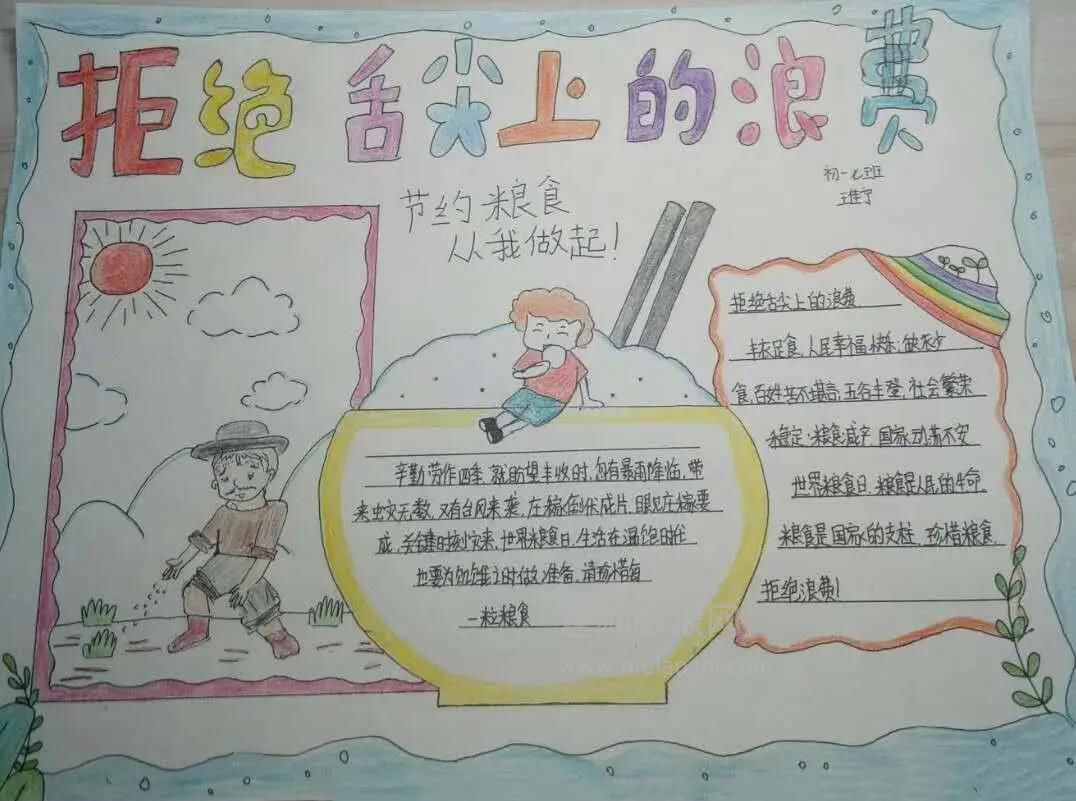 拒绝舌尖上的浪费
初一七班
节约粮食
从我做起!
拒绝舌尖上的浪费
丰衣足食,人民幸福快乐;缺衣少
食,百姓苦不堪言,五谷丰登,社会繁荣
稳定·粮食减产,国家动荡不安
世界粮食日,粮食是人民的生命,
粮食是国家的支柱,珍惜粮食,
拒绝浪费!
辛勤劳作四季,就盼望丰收时,忽有暴雨降临,带
来虫灾无数,又有台风来袭,庄稼倒伏成片,眼见庄稼要
成,关键时刻灾来,世界粮食日,生活在温饱时代
也要为饥饿之时做准备,请珍惜每
一粒粮食
www.nielaoshi.com